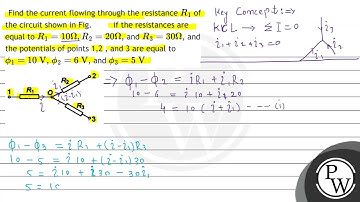 Find the current flowing through the resistance R₁ of
the circuit shown in Fig. If the resistances are
equal to R₁ = 10Ω, R₂ = 20Ω, and R₃ = 30Ω, and
the potentials of points 1,2 , and 3 are equal to
φ₁ = 10 V, φ₂ = 6 V, and φ₃ = 5 V
Key Concept :⇒
KCL → Σ I = 0
i₁ + i₂ + i₃ = 0
i₁
i₂
i₃
1
R₁
i
O
R₂
2
R₃
3
⇒ φ₁ - φ₂ = iR₁ + i₁R₂
10 - 6 = i 10 + i₁ 20
4 = 10 ( i + i₁) --- (i)
φ₁ - φ₃ = iR₁ + (i-i₁)R₃
10 - 5 = i 10 + (i-i₁)30
5 = i 10 + i30 - 30i₁
5 =
PW